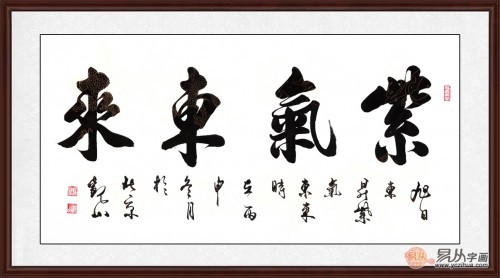 紫氣東來
旭日
東
昇紫
氣
東來
時
在丙
申
冬月
於
北京
易从字画
www.yczihua.com